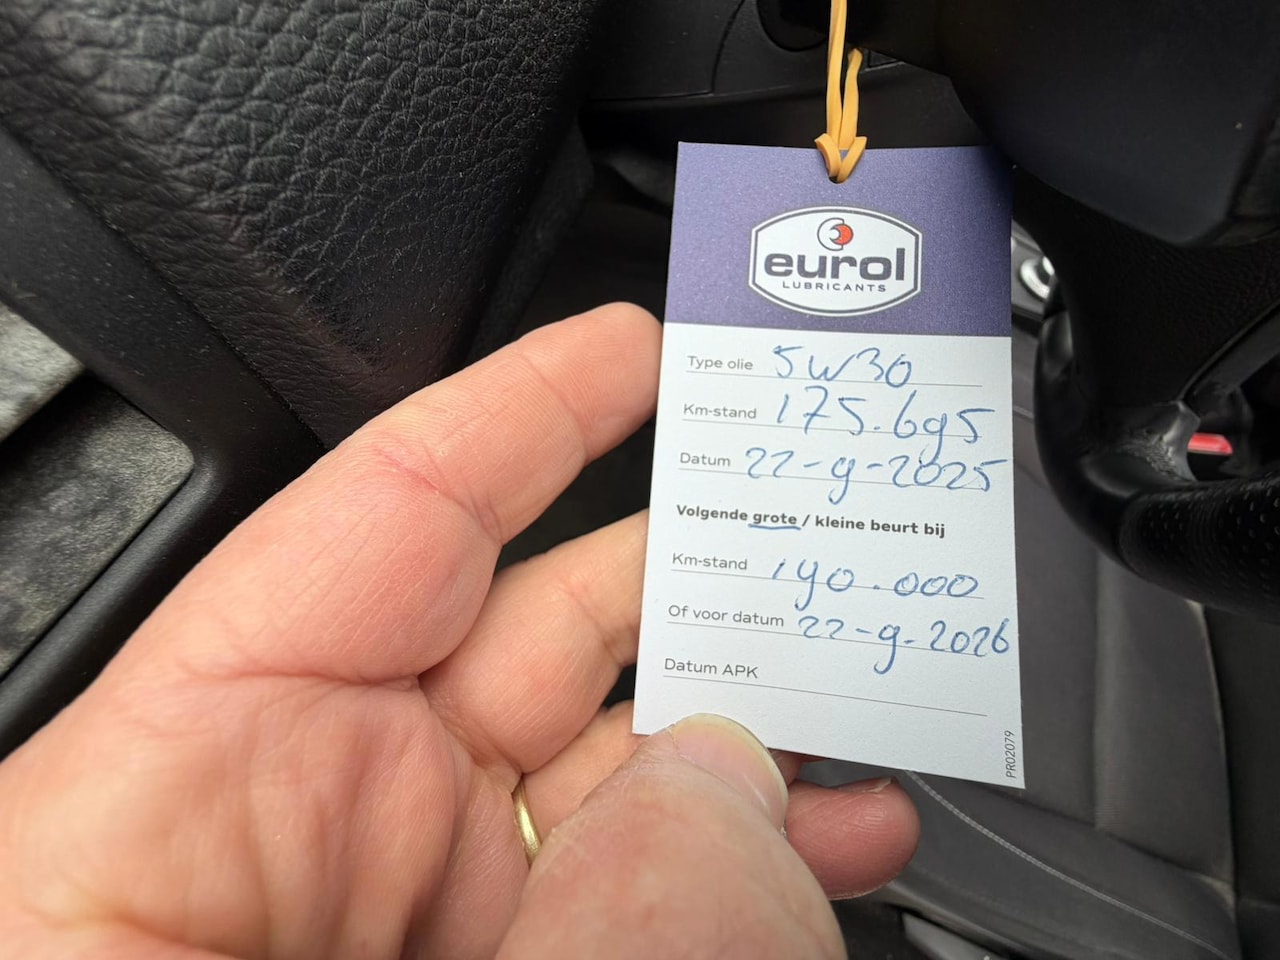 eurol
LUBRICANTS
Type olie 5W30
Km-stand 175.695
Datum 22-9-2025
Volgende grote / kleine beurt bij
Km-stand 190.000
Of voor datum 22-9-2026
Datum APK
PR02079